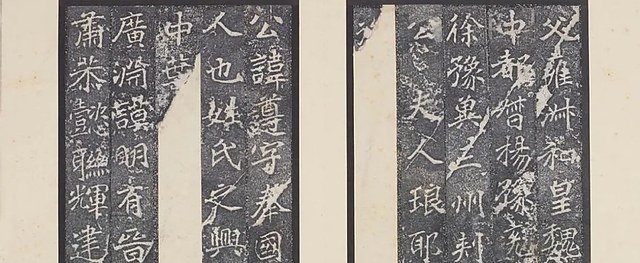 父雍淑和皇魏
中都督揚豫兗
徐豫冀三州刺
公夫人琅耶
公諱遵字奉國
人也姓氏之興
中葉
廣淵謨明有晉
肅恭懿聯輝建